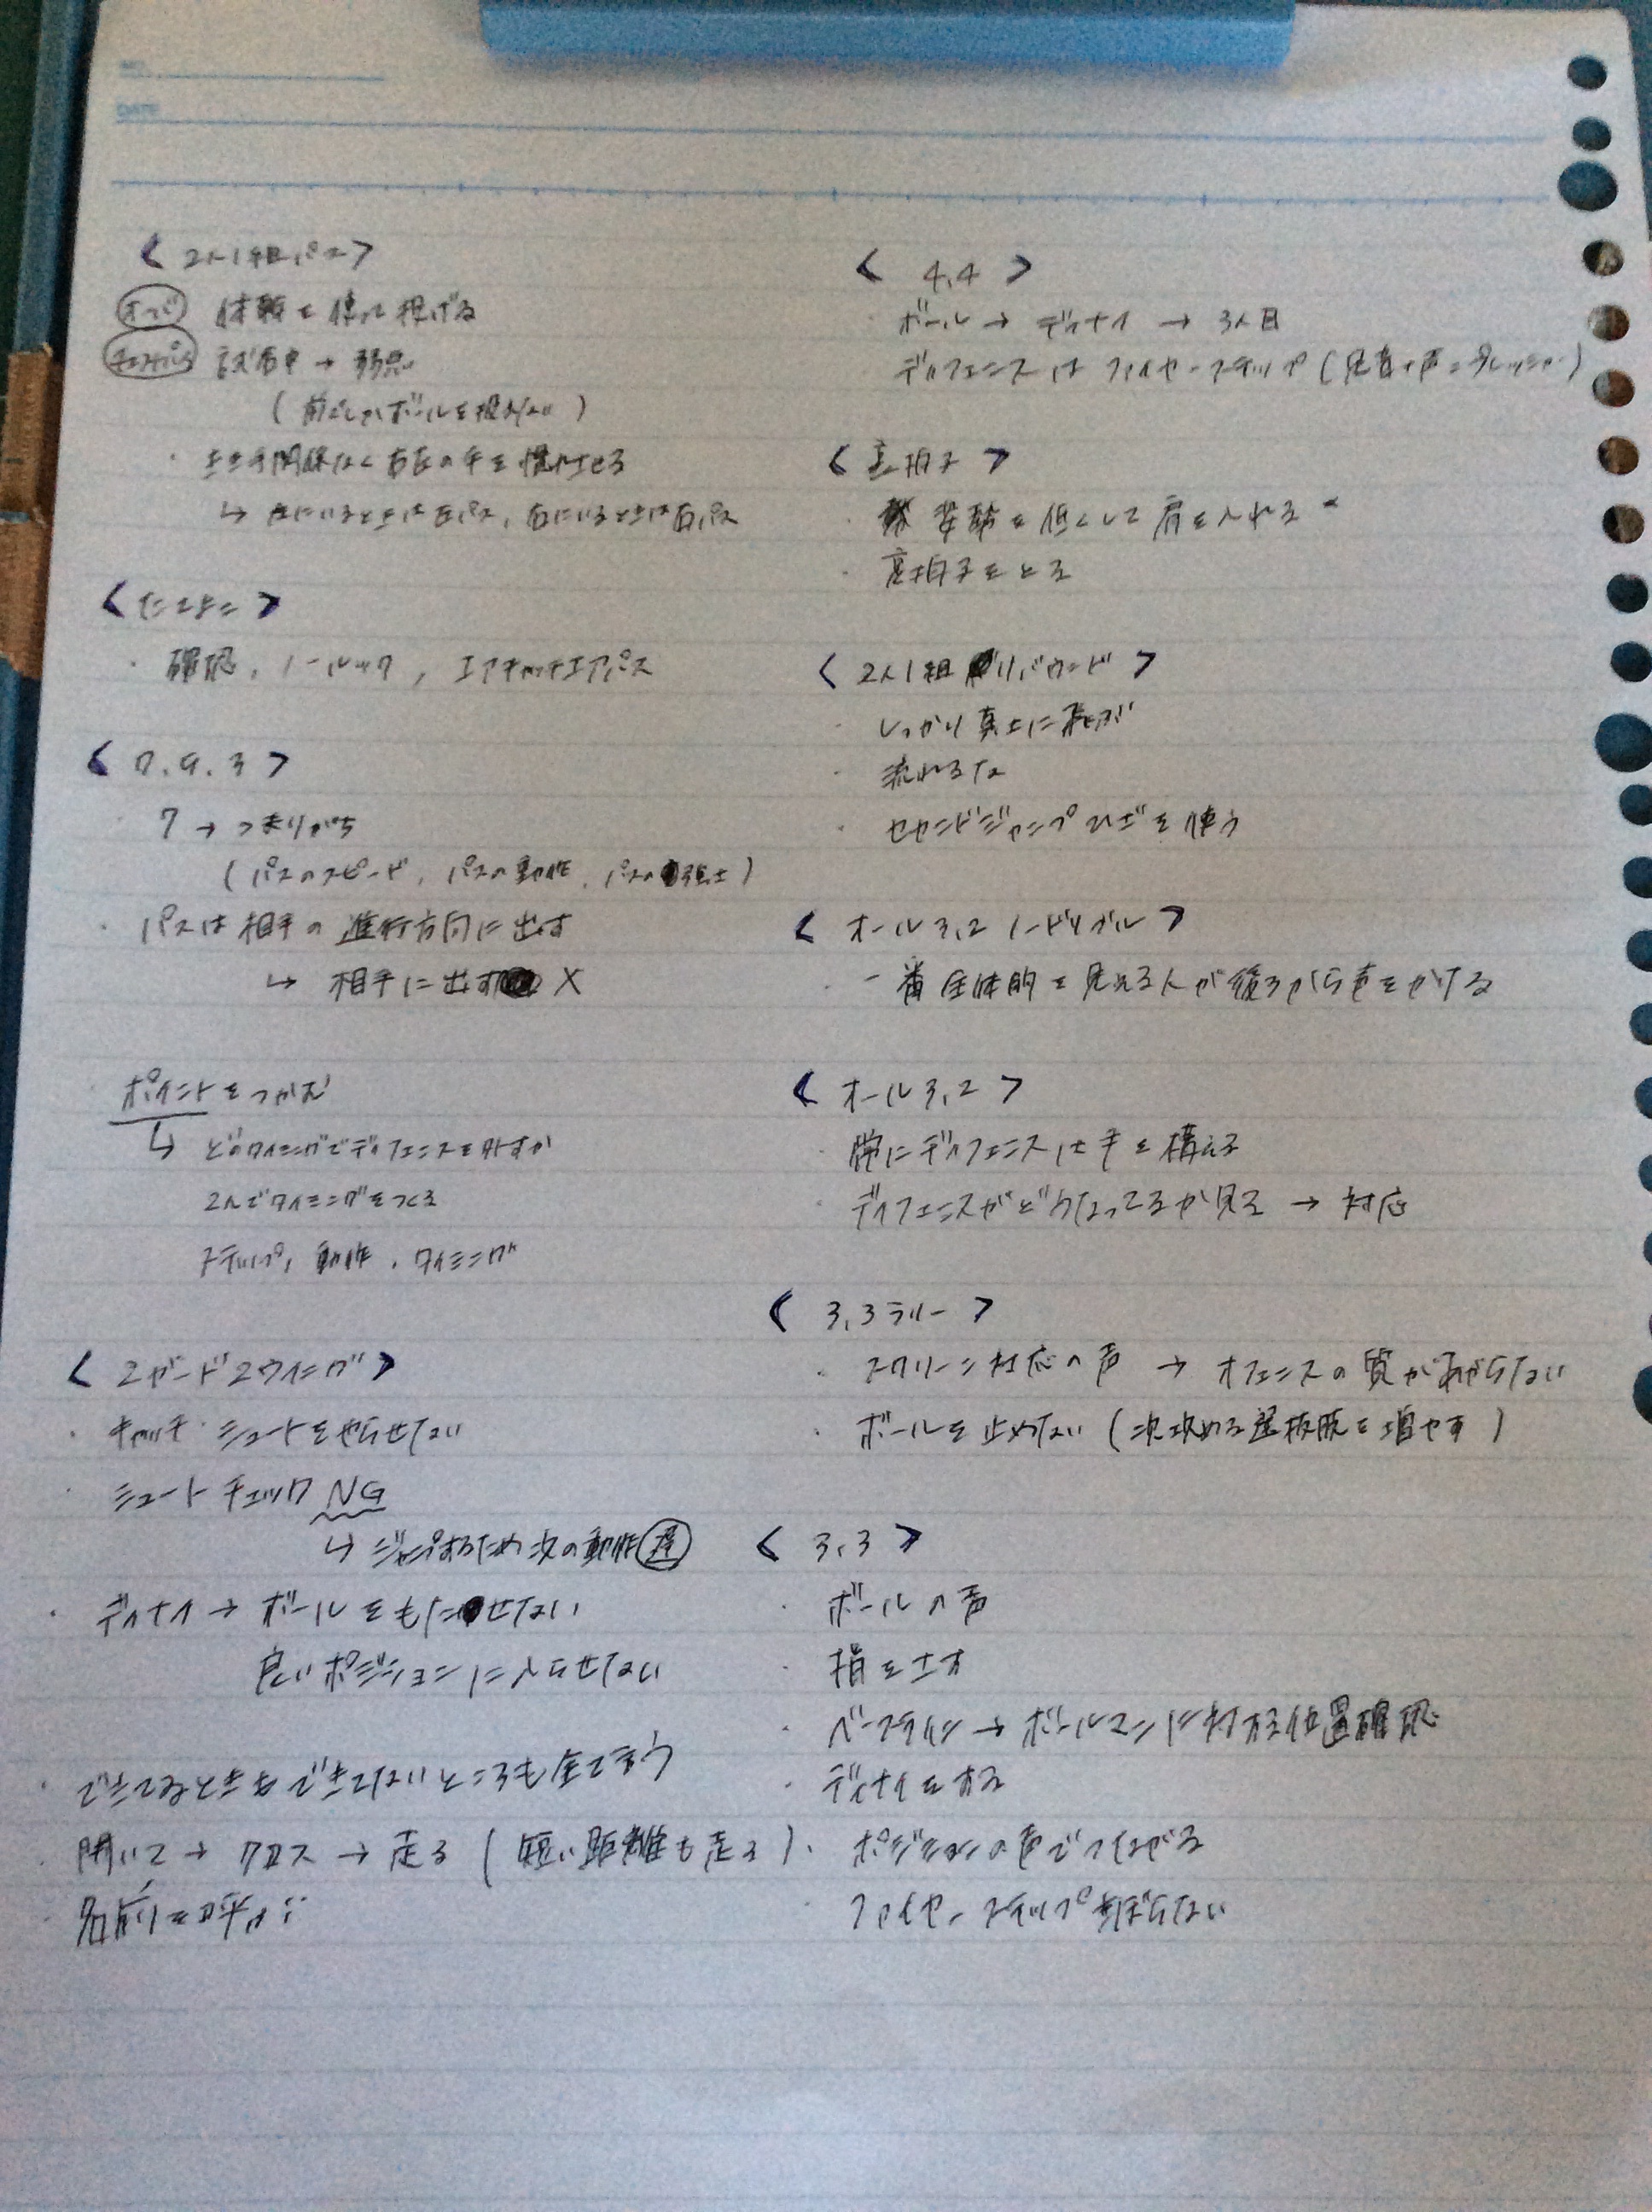 〈2人1組パス〉
オーバー 体幹を使って投げる
チェストパス 試合中→弱点
(前にしかボールを投げない)
・利き手関係なく右左の手を慣れさせる
↳ 左にいるときは左パス，右にいるときは右パス
〈たてよこ〉
・確認，ノールック，エアキャッチエアパス
〈7.9.3〉
・7→つまりがち
(パスのスピード，パスの動作，パスの強さ)
・パスは相手の進行方向に出す
↳ 相手に出す X
・ポイントをつかむ
↳ どのタイミングでディフェンスを外すか
2人でタイミングをつくる
ステップ，動作，タイミング
〈2ガード2ウイング〉
・キャッチ・シュートをやらせない
・シュートチェックNG
↳ ジャンプするため次の動作遅
・ディナイ→ボールをもたせない
良いポジションに入らせない
・できてるときもできてないところも全て言う
・開いて→クロス→走る(短い距離も走る)
・名前を呼ぶ
〈4,4〉
・ボール→ディナイ→3人目
・ディフェンスはファイヤーステップ(足音+声=プレッシャー)
〈拍子〉
・姿勢を低くして肩を入れる
・拍子をとる
〈2人1組リバウンド〉
・しっかり真上に飛ぶ
・流れるな
・セカンドジャンプひざを使う
〈オール3,2ノードリブル〉
・一番全体的を見れる人が後ろから声をかける
〈オール3,2〉
・常にディフェンスは手を構える
・ディフェンスがどうなってるか見る→対応
〈3,3ラリー〉
・スクリーン対応の声→オフェンスの質があがらない
・ボールを止めない(次攻める選択肢を増やす)
〈3,3〉
・ボールの声
・指をさす
・ベースライン→ボールマンに対する位置確認
・ディナイをする
・ポジションの声でつなげる
・ファイヤーステップさぼらない